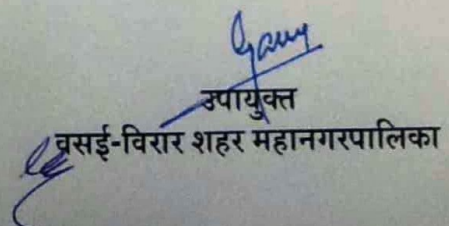 उपायुक्त
वसई-विरार शहर महानगरपालिका